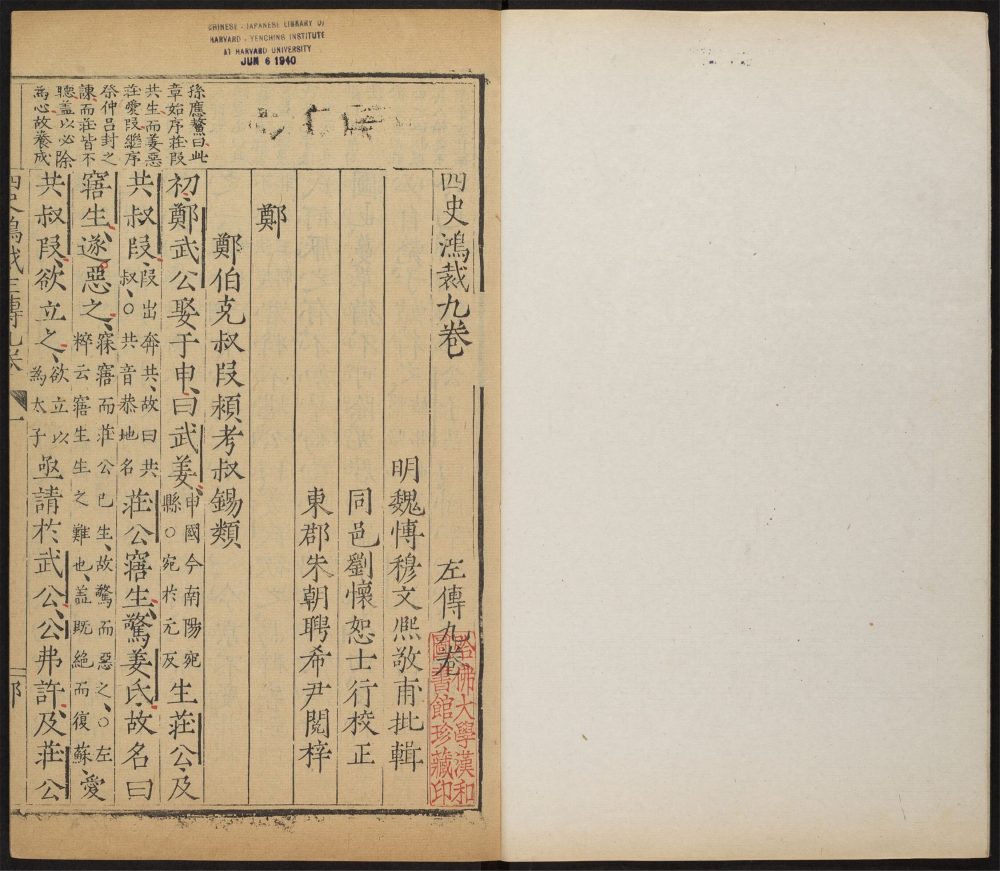 CHINESE - JAPANESE LIBRARY OF
HARVARD - YENCHING INSTITUTE
AT HARVARD UNIVERSITY
JUN 6 1940
四史鴻裁九卷 左傳九卷
明魏博穆文熙敬甫批輯
同邑劉懷恕士行校正
東郡朱朝聘希尹閱梓
鄭
鄭伯克叔段潁考叔錫類
初鄭武公娶于申曰武姜申國今南陽宛縣○宛於元反生莊公及
共叔段段出奔共故曰共叔○共音恭地名莊公寤生驚姜氏故名曰
寤生遂惡之寐寤而莊公已生故驚而惡之○左粹云寤生生之難也蓋既絕而復蘇愛
共叔段欲立之欲立以為太子亟請於武公公弗許及莊公
孫應鰲曰此
章始序莊段
共生而姜惡
莊愛段繼序
祭仲呂封之
諫而莊皆不
聽蓋以必除
為心故養成
哈佛大學漢和
圖書館珍藏印